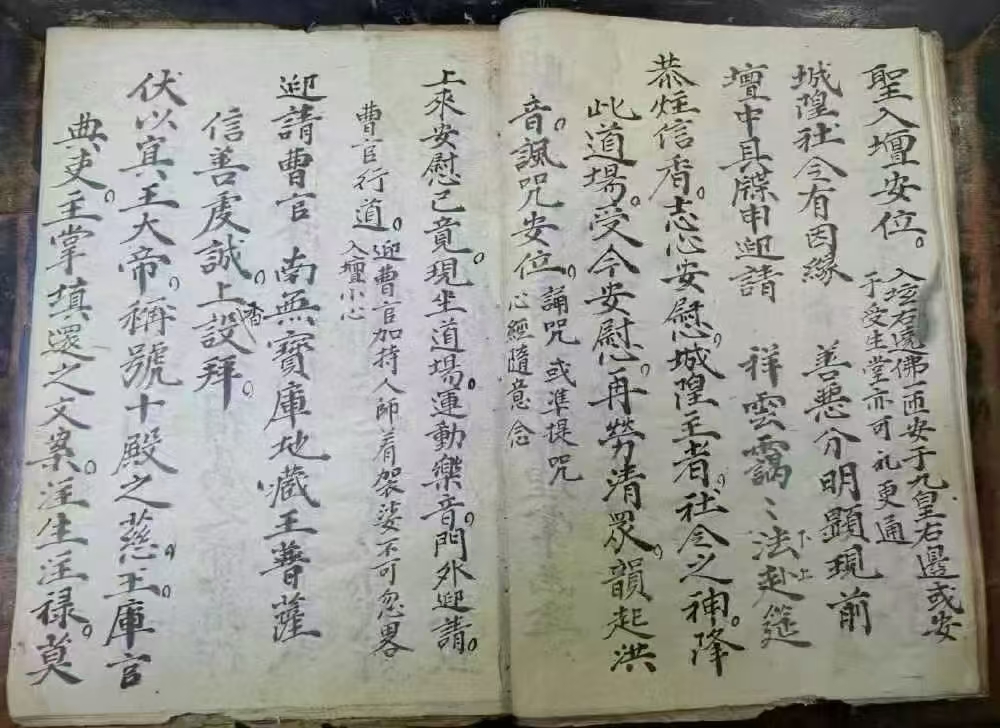 聖入壇安位。
入壇右遶佛一匝安于九皇右邊或安
于受生堂亦可礼更通
城隍社令有因緣 善惡分明顯現前
壇中具牒申迎請 祥雲靄〻法赴筵
下上
恭炷信香。志心安慰。城隍王者。社令之神。降
此道場。受今安慰。再勞清眾。韻起洪
音。諷咒安位。
誦咒或準提咒
心經隨意念
上來安慰已竟。現坐道場。運動樂音。門外迎請。
曹官行道。
迎曹官加持人師着袈裟不可忽畧
入壇小心
迎請曹官 南無寶庫地藏王菩薩
信善虔誠。上香設拜。
伏以冥王大帝。稱號十殿之慈。王庫官
典吏。主掌填還之文案。注生注祿。莫